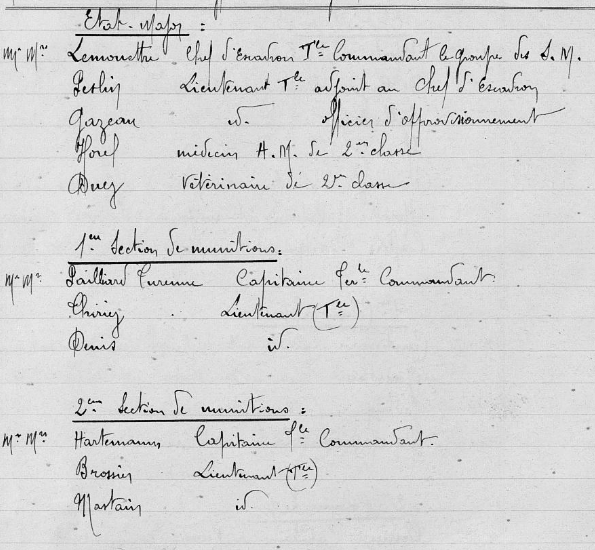 Etat-Major :
Mr Mrs Lemonettre Chef d'Escadron Tle Commandant le groupe des S.M.
Lieutenant Tle adjoint au Chef d'Escadron
Gazeau id. officier d'approvisionnement
Horel médecin A.M. de 2me classe
Duez Vétérinaire de 2me classe
1ère Section de munitions :
Mr Mrs Pailliard Turenne Capitaine Terle Commandant.
Thiriez Lieutenant (Tle)
Denis id.
2ème Section de munitions :
Mr Mrs Hartemann Capitaine Tle Commandant.
Brossier Lieutenant (Tle)
Mastain id.